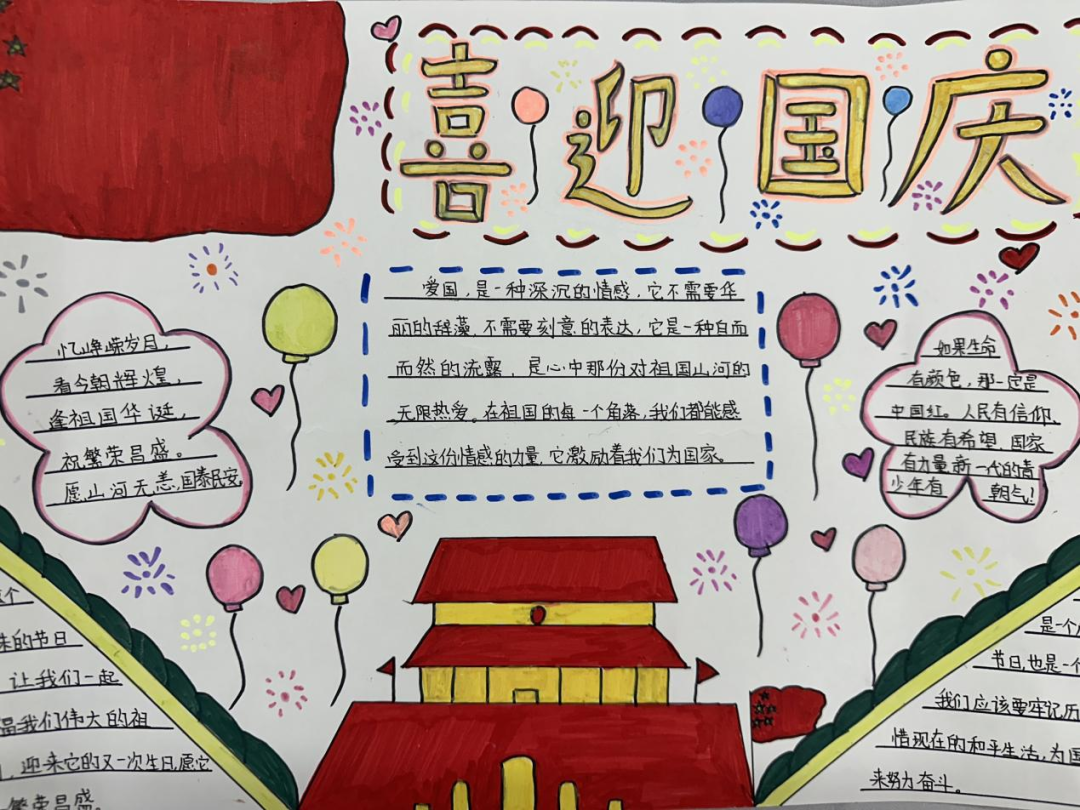 喜迎国庆
爱国，是一种深沉的情感，它不需要华
丽的辞藻，不需要刻意的表达，它是一种自而
而然的流露，是心中那份对祖国山河的
无限热爱。在祖国的每一个角落，我们都能感
受到这份情感的力量，它激励着我们为国家。
忆峥嵘岁月，
看今朝辉煌，
逢祖国华诞，
祝繁荣昌盛。
愿山河无恙，国泰民安
如果生命
有颜色，那一定是
中国红。人民有信仰，
民族有希望，国家
有力量，新一代的青
少年有朝气！
个
的节日
让我们一起
我们伟大的祖
，迎来它的又一次生日，愿它
繁荣昌盛。
是一个
节日，也是一个
我们应该要牢记历
惜现在的和平生活，为国
来努力奋斗。